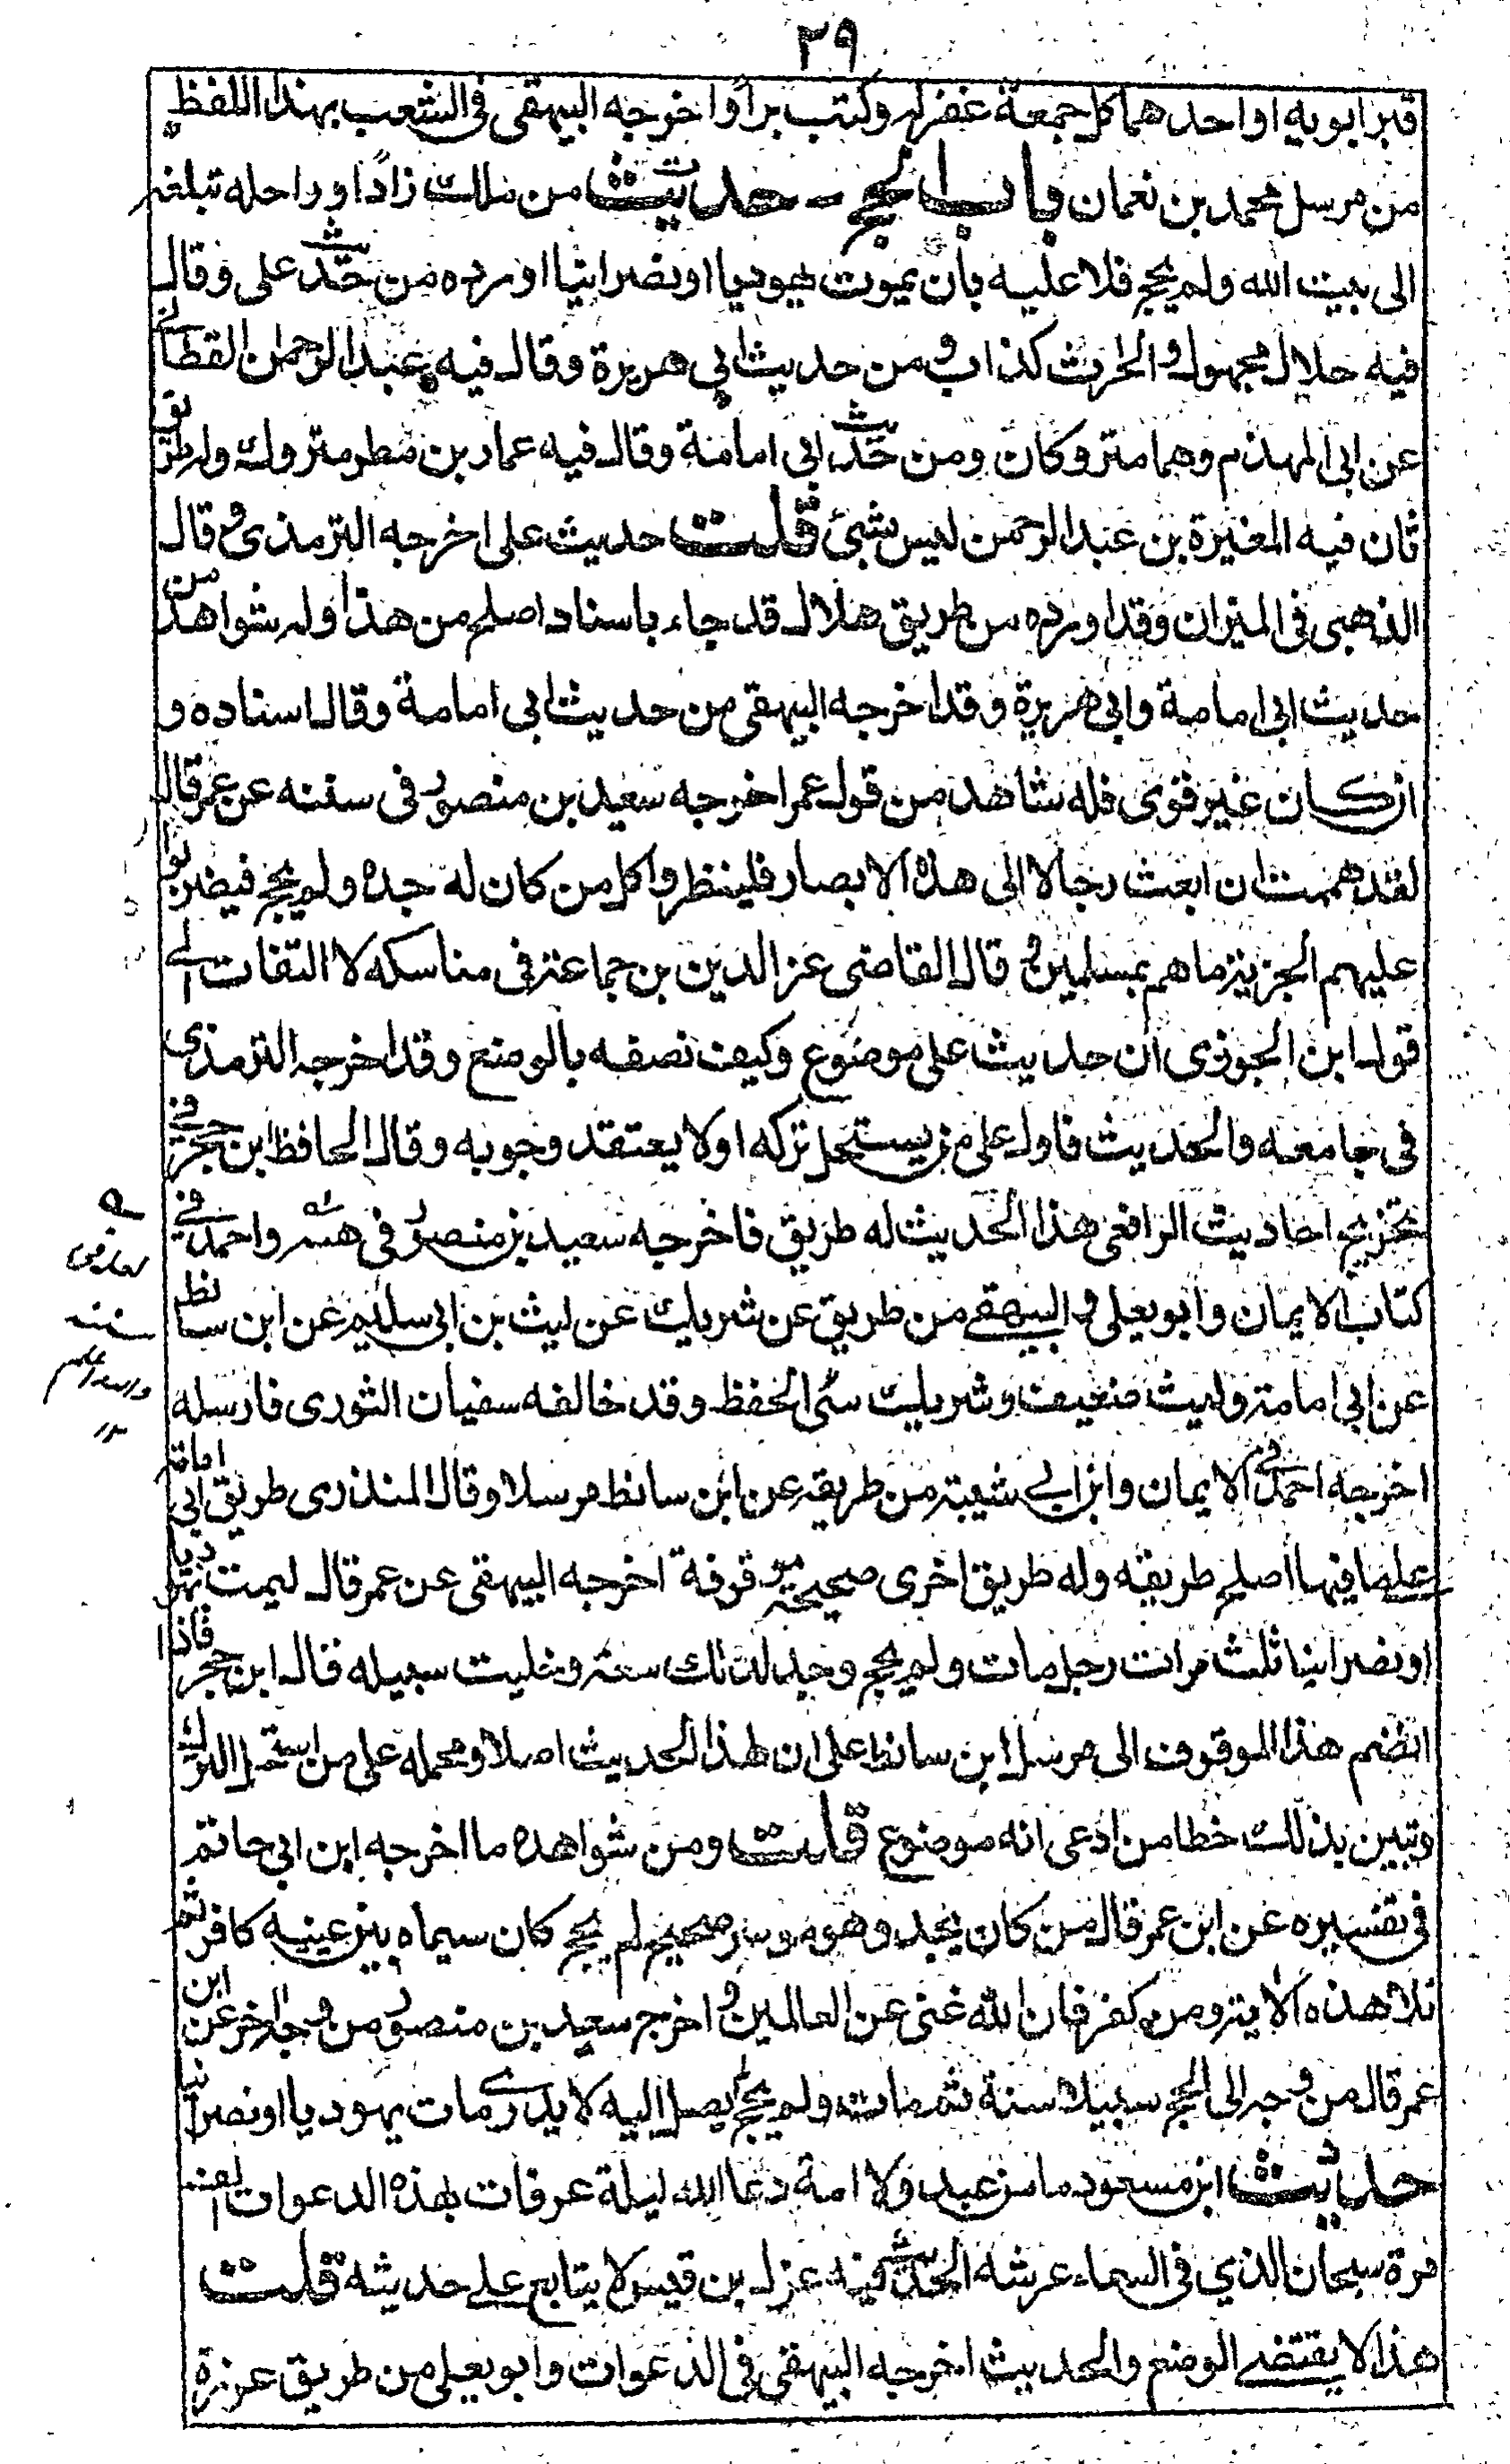 ٢٩
قبر ابويه او احدهما كل جمعة غفر له وكتب برا و اخرجه البيهقى فى الشعب بهذا اللفظ
من مرسل محمد بن نعمان باب الحج - حديث من ملك زادا وراحله تبلغه
الى بيت الله ولم يحج فلا عليه بأن يموت يهوديا او نصرانيا اورده من حديث على وقال
فيه حلال مجهول والحارث كذاب و من حديث ابي هريرة وقال فيه عبد الرحمن القطامي
عن ابى المهذم وهما متروكان ومن حديث ابى امامة وقال فيه عمار بن مطر متروك وله طريق
ثان فيه المغيرة بن عبد الرحمن ليس بشئ قلت حديث على اخرجه الترمذى و قال
الذهبى فى الميزان وقد اورده من طريق هلال قد جاء باسناد اصلح من هذا وله شواهد من
حديث ابى امامة وابى هريرة وقد اخرجه البيهقى من حديث ابى امامة وقال اسناده و
ان كان غير قوى فله شاهد من قول عمر اخرجه سعيد بن منصور فى سننه عن عمر قال
لقد هممت ان ابعث رجالا الى هذه الابصار فلينظروا كل من كان له جده ولم يحج فيضربوا
عليهم الجزية ما هم بمسلمين و قال القاضى عز الدين بن جماعة فى مناسكه لا التفات الى
قول ابن الجوزى ان حديث على موضوع وكيف نصفه بالوضع وقد اخرجه الترمذى
فى جامعه والحديث فاول على من يستحل تركه او لا يعتقد وجوبه وقال الحافظ ابن حجر فى
تخريج احاديث الرافعى هذا الحديث له طريق فاخرجه سعيد بن منصور فى واحمد فى
كتاب الايمان وابو يعلى و البيهقى من طريق عن شريك عن ليث بن ابى سليم عن ابن سابط
عن ابى امامة وليث ضعيف وشريك سئ الحفظ وقد خالفه سفيان الثورى فارسله
اخرجه احمد فى الايمان وابن ابى شيبة من طريقه عن ابن سابط مرسلا وقال المنذرى طريق ابى امامة
على ما فيها اصلح طريقه وله طريق اخرى صحيحة موقوفة اخرجه البيهقى عن عمر قال ليمت يهوديا
او نصرانيا ثلث مرات رجل مات ولم يحج وجد لذلك سعة وخليت سبيله قال ابن حجر فاذا
انضم هذا الموقوف الى مرسل ابن سابط على ان لهذا الحديث اصلا ومحمله على من استحل الترك
وتبين بذلك خطا من ادعى انه موضوع قلت ومن شواهده ما اخرجه ابن ابى حاتم
فى تفسيره عن ابن عمر قال من كان يجد وهو موسر صحيح لم يحج كان سيماه بين عينيه كافر ثم
تلا هذه الاية ومن كفر فان الله غنى عن العالمين و اخرج سعيد بن منصور من وجه اخر عن ابن
عمر قال من وجد الى الحج سبيلا سنة ثم مات ولم يحج يصل اليه لا يدرى مات يهوديا او نصرانيا
حديث ابن مسعود ما من عبد ولا امة دعا الله ليلة عرفات بهذه الدعوات الف
مرة سبحان الذي فى السماء عرشه الحديث فيه عزل بن قيس لا يتابع على حديثه قلت
هذا لا يقتضى الوضع والحديث اخرجه البيهقى فى الدعوات وابو يعلى من طريق عزرة